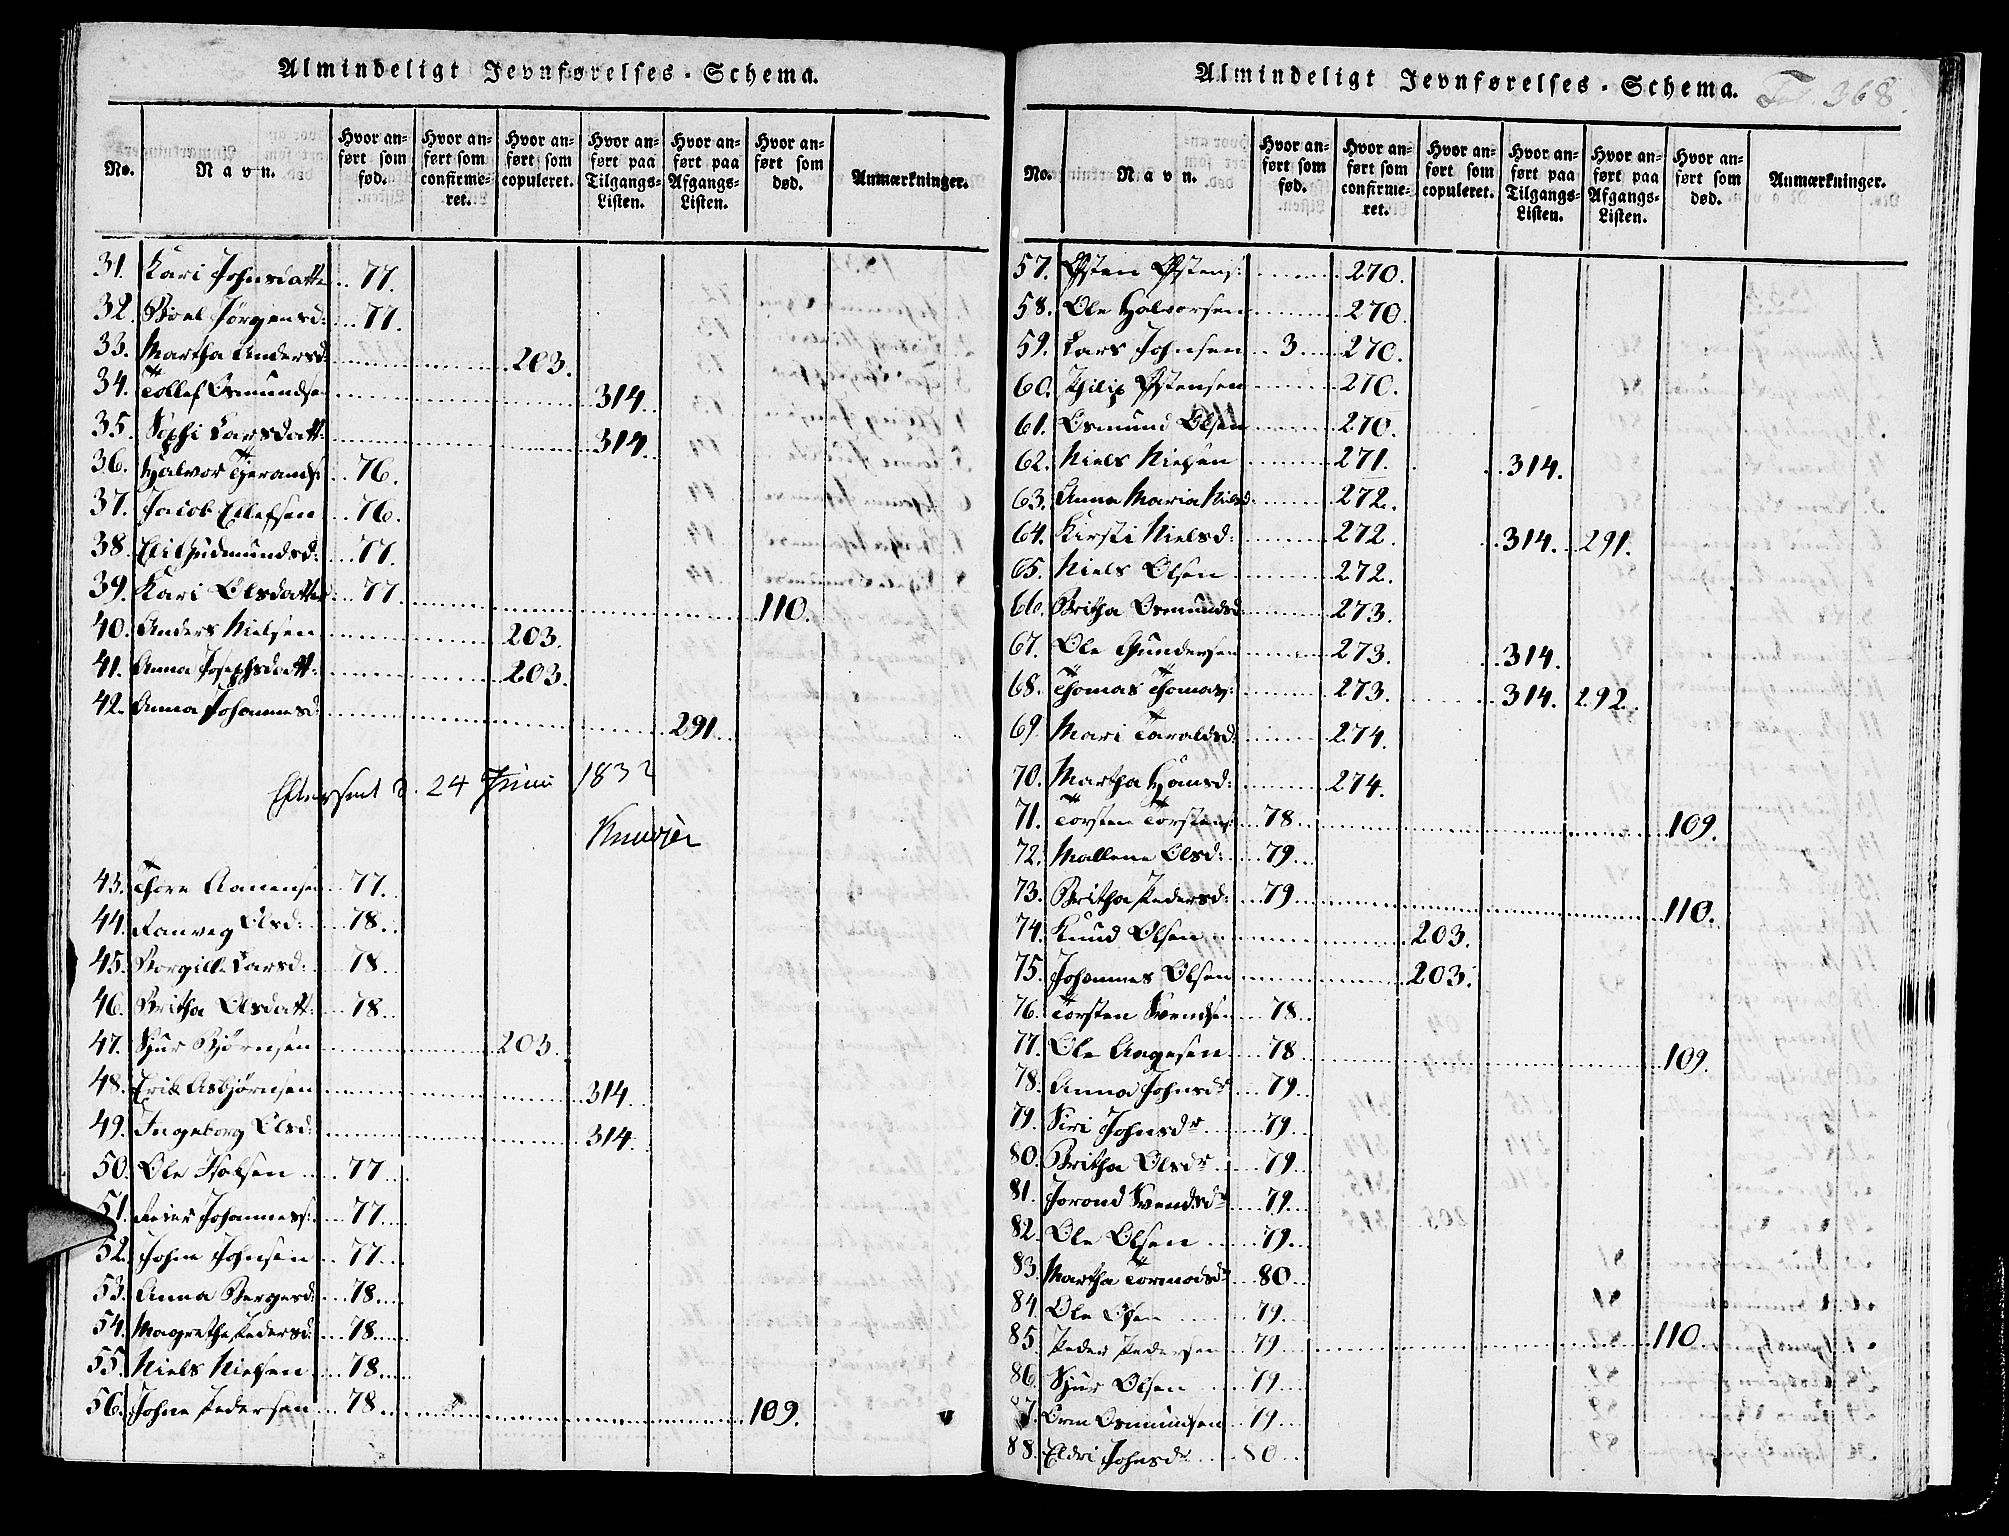 Almindeligt Jevnførelses-Schema.
No. Navn. Hvor anført som fød. Hvor anført som confirmeret. Hvor anført som copuleret. Hvor anført paa Tilgangs-Listen. Hvor anført paa Afgangs-Listen. Hvor anført som død. Anmærkninger.
31. Kari Johnsdatter 77.
32. Boel Jörgensd: 77.
33. Martha Andersd: 203.
34. Tollef Osmundsen 314.
35. Sophi Larsdatt: 314.
36. Halvor Tjerands: 76.
37. Jacob Ellefsen 76.
38. Eli Gudmundsd: 77.
39. Kari Olsdatter 77. 110.
40. Anders Nielsen 203.
41. Anna Josephsdatt: 203.
42. Anna Johannesd: 291.
24 Juni 1832
43. Thore Aanensen 77.
44. Ranveg Olsd: 78.
45. Borgille Larsd: 78.
46. Britha Olsdatt: 78.
47. Sjur Bjørnsen 203.
48. Erik Asbjørnsen 314
49. Ingeborg Olsd: 314.
50. Ole 77.
51. Peder Johanness: 77.
52. Johne Johnsen 77.
53. Anna Bergesd: 78.
54. Magrethe Pedersd: 78.
55. Niels Nielsen 78.
56. Johne Pedersen 78. 109.
Almindeligt Jevnførelses-Schema. Fol. 368.
No. Navn. Hvor anført som fød. Hvor anført som confirmeret. Hvor anført som copuleret. Hvor anført paa Tilgangs-Listen. Hvor anført paa Afgangs-Listen. Hvor anført som død. Anmærkninger.
57. Østen Østens: 270.
58. Ole Halvorsen 270.
59. Lars Johnsen 3. 270.
60. Philip Østensen 270.
61. Osmund Olsen 270.
62. Niels Nielsen 271. 314.
63. Anna Maria Nielsd: 272.
64. Kirsti Nielsd: 272. 314. 291.
65. Niels Olsen 272.
66. Britha Osmundsd: 273.
67. Ole Gundersen 273. 314.
68. Thomas Thomas: 273. 314. 292.
69 Mari Taraldsd: 274.
70. Martha Hansd: 274.
71. Torsten Torstens: 78. 109.
72. Mallene Olsd: 79.
73. Britha Pedersd: 79. 110.
74. Knud Olsen 203.
75. Johannes Olsen 203.
76. Torsten Svendsen 78.
77. Ole Aagesen 78 109.
78. Anna Johnsdr 79.
79. Siri Johnsdr 79.
80. Britha Olsdr 79.
81. Jorond Svendsdr 79.
82. Ole Olsen 79.
83. Martha Tormodsdr 80.
84 Ole Olsen 79.
85. Peder Pedersen 79. 110.
86. Sjur Olsen 79.
87. Orm Osmundsen 79.
88. Eldri Johnsdr 80.